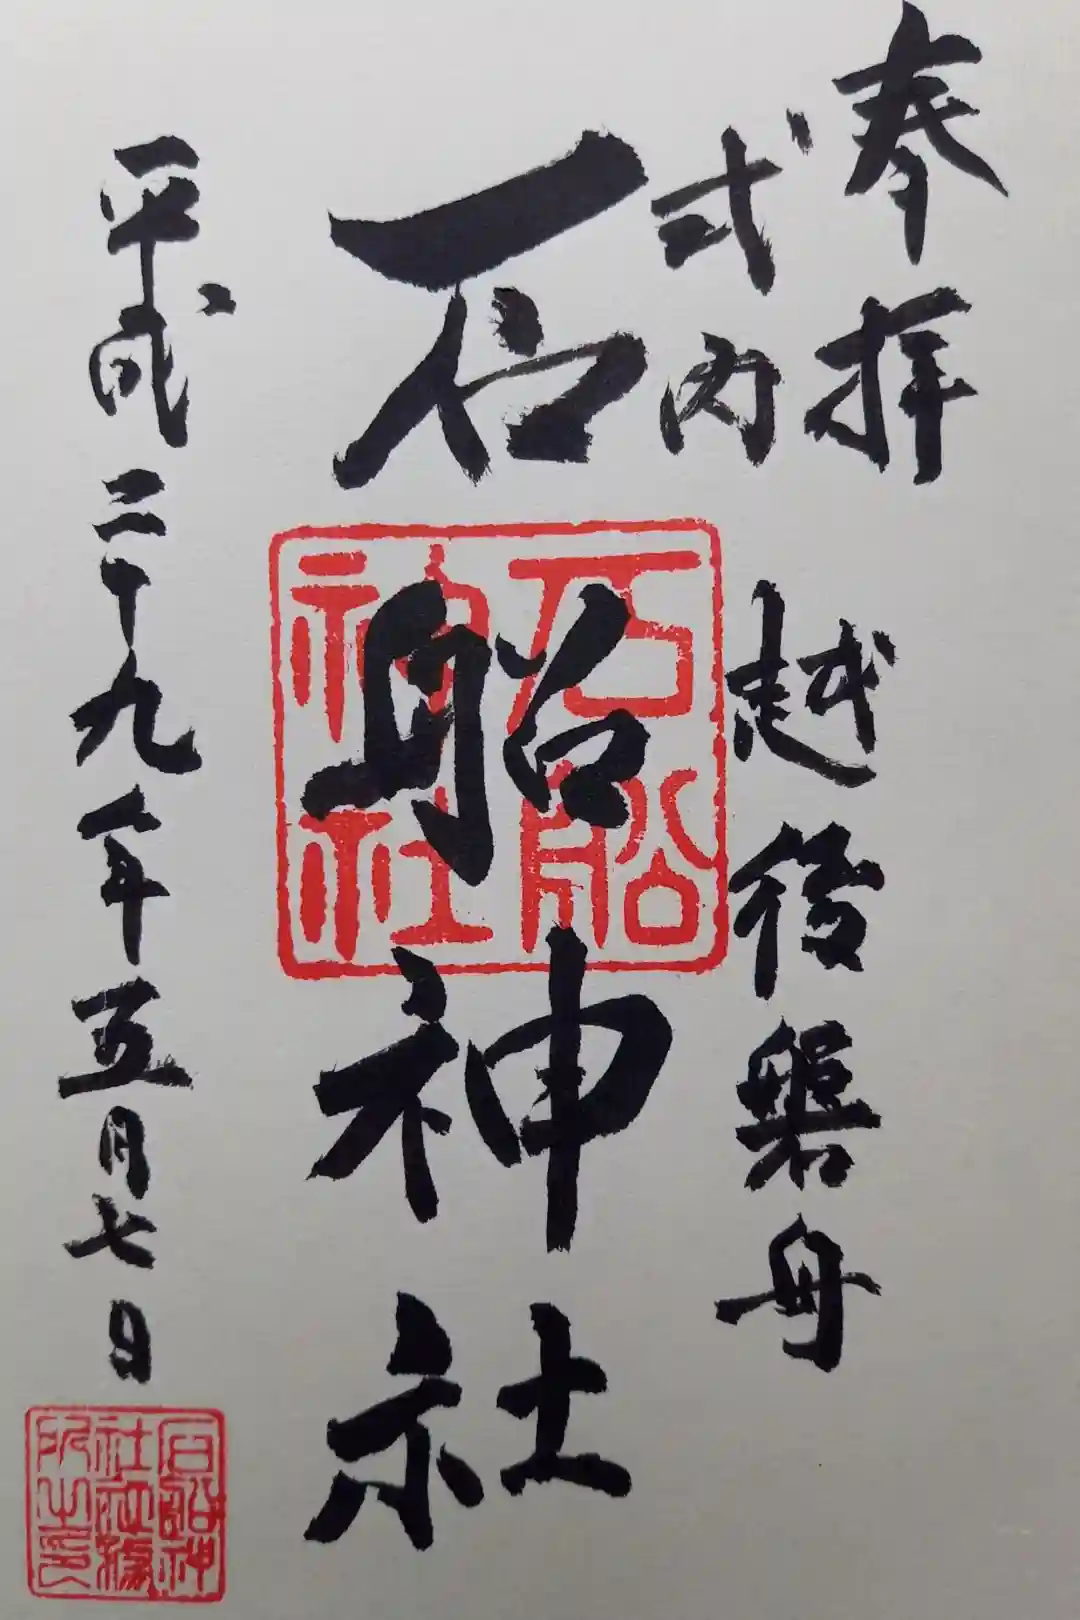 奉拝
式内
越後磐舟
石船神社
石船神社
平成二十九年五月七日
石船神
社社務
所之印